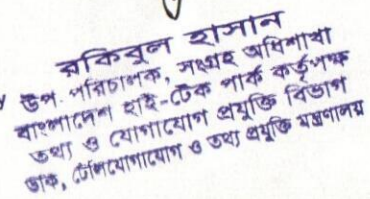 রকিবুল হাসান
উপ. পরিচালক, সংগ্রহ অধিশাখা
বাংলাদেশ হাই-টেক পার্ক কর্তৃপক্ষ
তথ্য ও যোগাযোগ প্রযুক্তি বিভাগ
ডাক, টেলিযোগাযোগ ও তথ্য প্রযুক্তি মন্ত্রণালয়